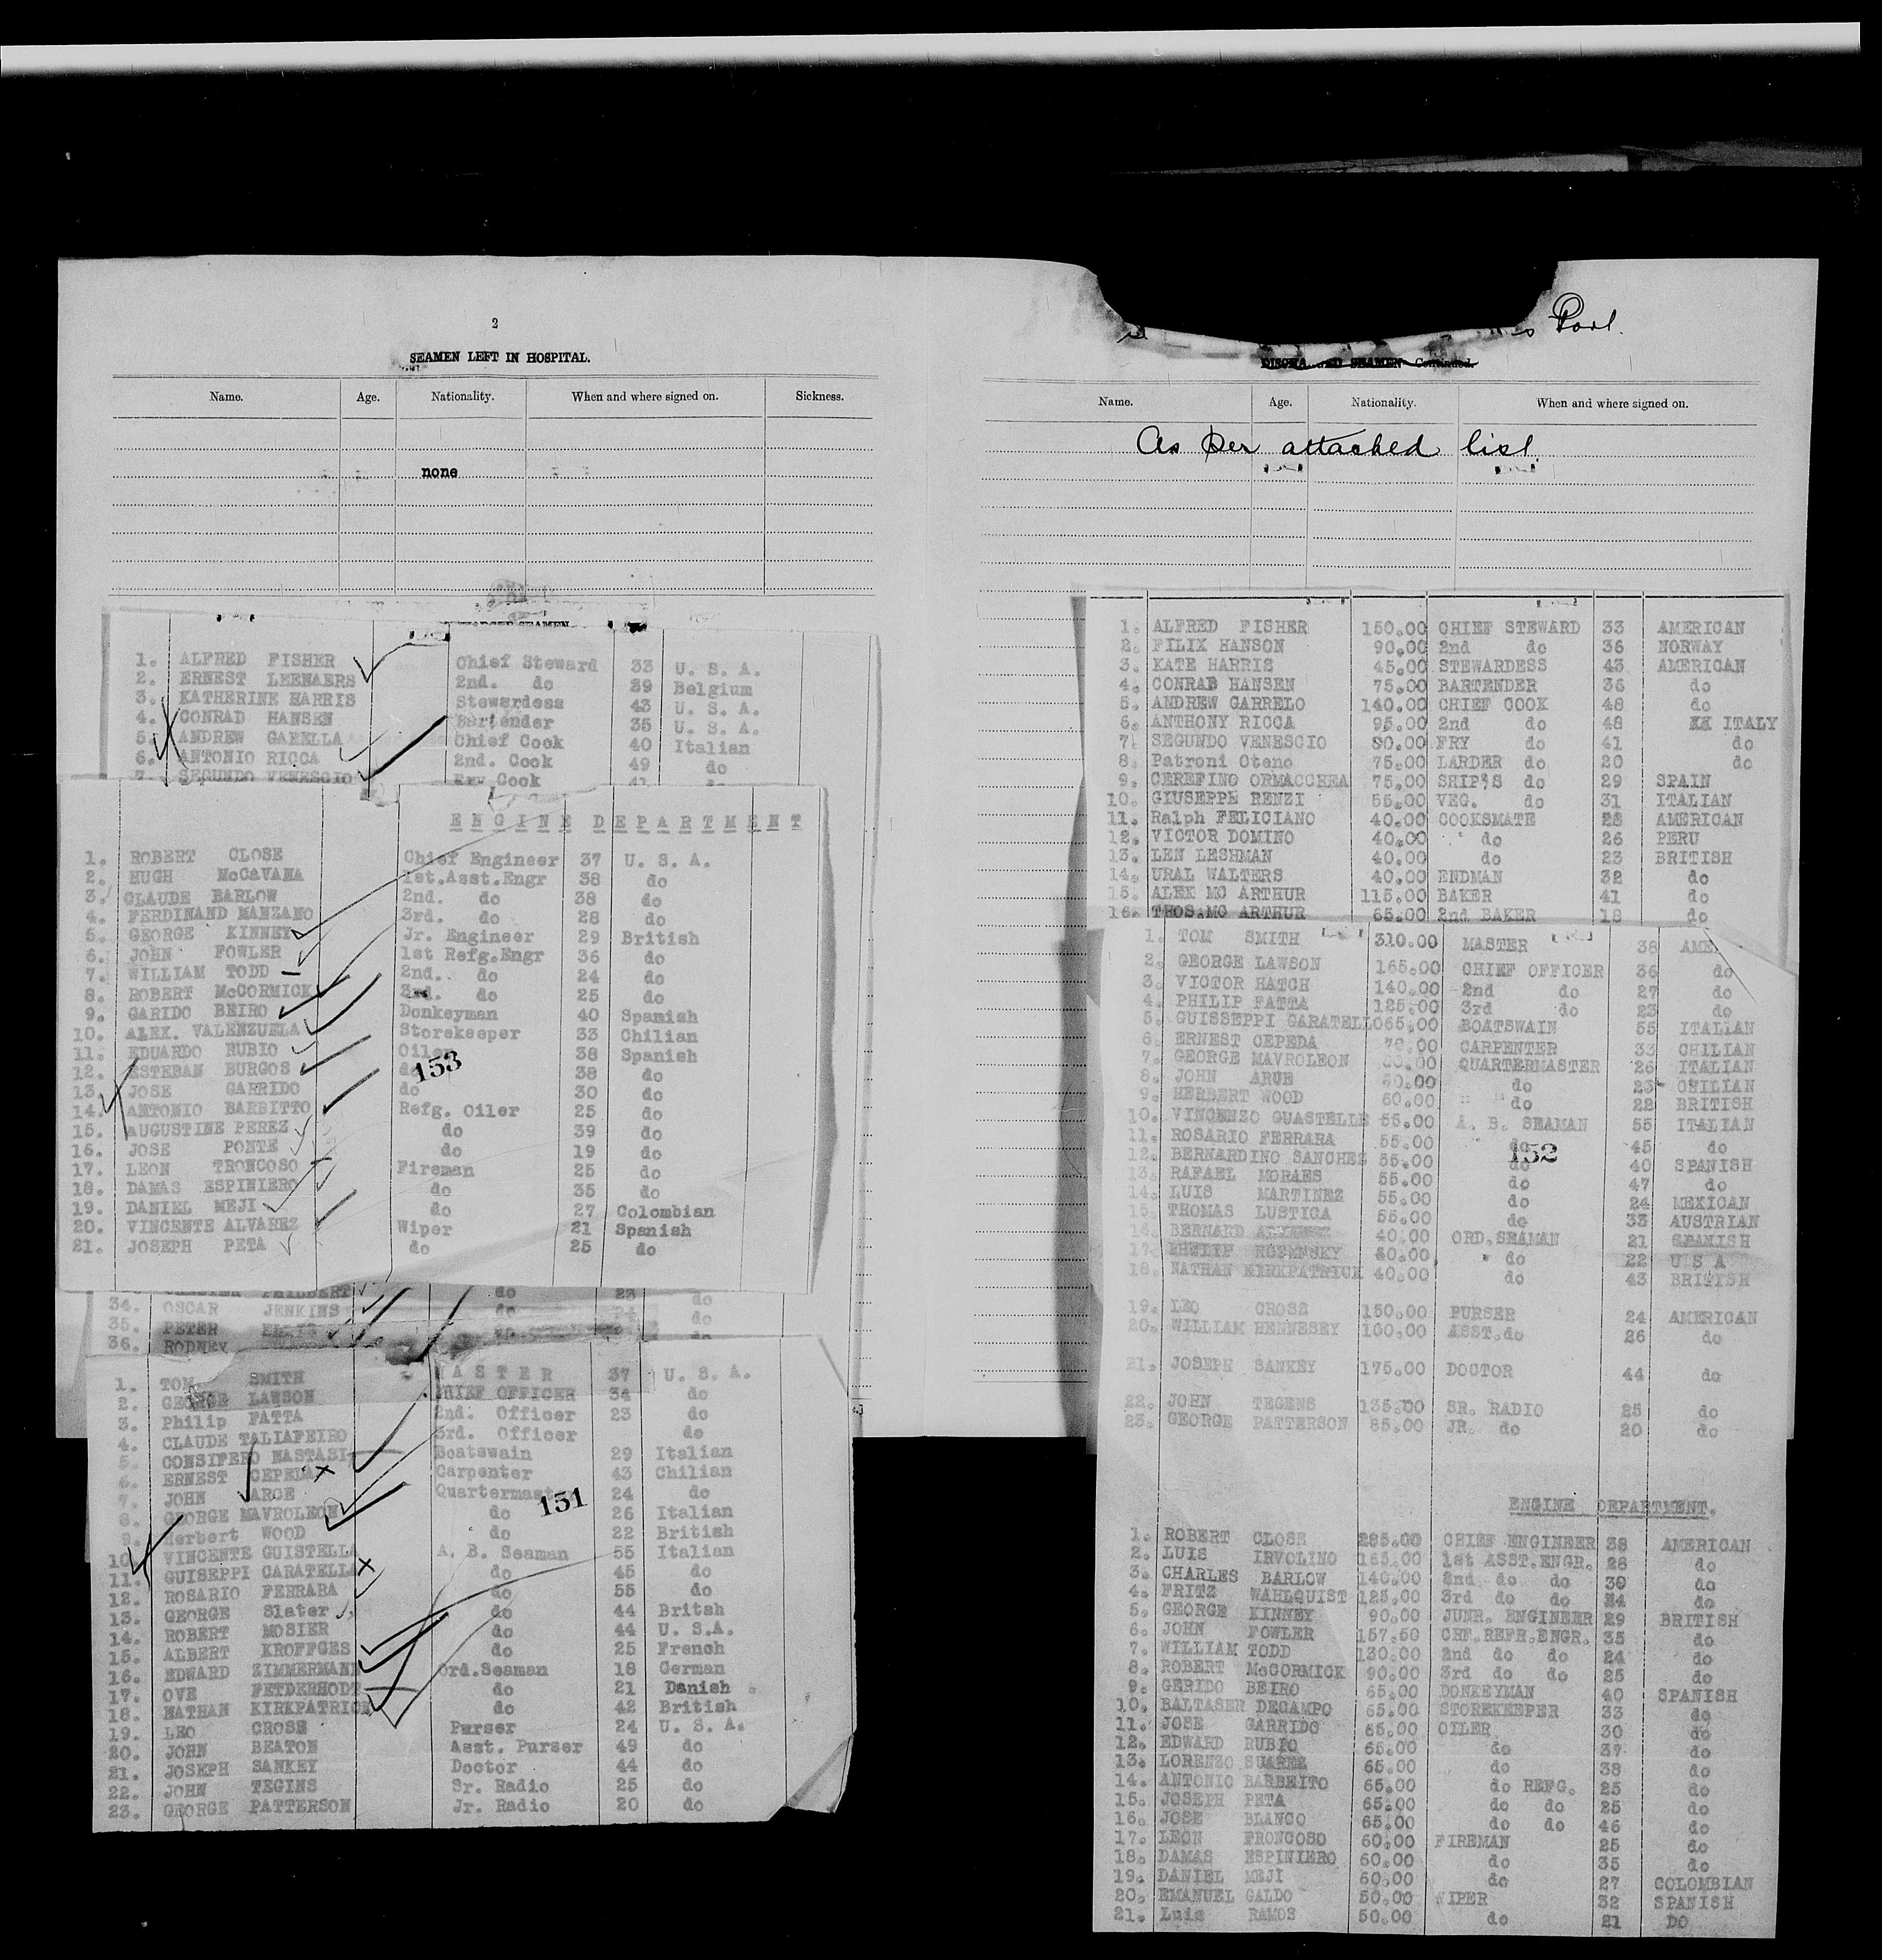 2
SEAMEN LEFT IN HOSPITAL.
Name. Age. Nationality. When and where signed on. Sickness.
none
1. ALFRED FISHER Chief Steward 33 U. S. A.
2. ERNEST LEENAERS 2nd. do 29 Belgium
3. KATHERINE HARRIS Stewardess 43 U. S. A.
4. CONRAD HANSEN Bartender 35 U. S. A.
5. ANDREW GARELLA Chief Cook 40 Italian
6. ANTONIO RICCA 2nd. Cook 49 do
7. SEGUNDO VENESCIO Fry Cook 41
ENGINE DEPARTMENT
1. ROBERT CLOSE Chief Engineer 37 U. S. A.
2. HUGH McCAVANA 1st.Asst.Engr 38 do
3. CLAUDE BARLOW 2nd. do 38 do
4. FERDINAND MANZANO 3rd. do 28 do
5. GEORGE KINNEY Jr. Engineer 29 British
6. JOHN FOWLER 1st Refg.Engr 36 do
7. WILLIAM TODD 2nd. do 24 do
8. ROBERT McCORMICK 3rd. do 25 do
9. GARIDO BEIRO Donkeyman 40 Spanish
10. ALEX. VALENZUELA Storekeeper 33 Chilian
11. EDUARDO RUBIO Oiler 38 Spanish
12. ESTEBAN BURGOS do 38 do
153
13. JOSE GARRIDO do 30 do
14. ANTONIO BARBITTO Refg. Oiler 25 do
15. AUGUSTINE PEREZ do 39 do
16. JOSE PONTE do 19 do
17. LEON TRONCOSO Fireman 25 do
18. DAMAS ESPINIERO do 35 do
19. DANIEL MEJI do 27 Colombian
20. VINCENTE ALVAREZ Wiper 21 Spanish
21. JOSEPH PETA do 25 do
do 23 do
34. OSCAR JENKINS do 24 do
35. PETER do
36. RODNEY do
1. TOM SMITH MASTER 37 U. S. A.
2. GEORGE LAWSON CHIEF OFFICER 34 do
3. Philip FATTA 2nd. Officer 23 do
4. CLAUDE TALIAFEIRO 3rd. Officer do
5. CONSIFERO NASTASI Boatswain 29 Italian
6. ERNEST CEPEDA Carpenter 43 Chilian
7. JOHN ARGE Quartermaster 24 do
151
8. GEORGE MAVROLEON do 26 Italian
9. Herbert WOOD do 22 British
10. VINCENTE GUISTELLA A. B. Seaman 55 Italian
11. GUISEPPI CARATELLA do 45 do
12. ROSARIO FERRARA do 55 do
13. GEORGE Slater do 44 Britsh
14. ROBERT MOSIER do 44 U. S.A.
15. ALBERT KROFFGES do 25 French
16. EDWARD ZIMMERMANN Ord.Seaman 18 German
17. OVE FETDERHODT do 21 Danish
18. NATHAN KIRKPATRICK do 42 British
19. LEO CROSS Purser 24 U. S. A.
20. JOHN BEATON Asst. Purser 49 do
21. JOSEPH SANKEY Doctor 44 do
22. JOHN TEGINS Sr. Radio 25 do
23. GEORGE PATTERSON Jr. Radio 20 do
Port.
SEAMEN Continued.
Name. Age. Nationality. When and where signed on.
As per attached list.
1. ALFRED FISHER 150.00 CHIEF STEWARD 33 AMERICAN
2. FILIX HANSON 90.00 2nd do 36 NORWAY
3. KATE HARRIS 45.00 STEWARDESS 43 AMERICAN
4. CONRAD HANSEN 75.00 BARTENDER 36 do
5. ANDREW GARRELO 140.00 CHIEF COOK 48 do
6. ANTHONY RICCA 95.00 2nd do 48 XX ITALY
7. SEGUNDO VENESCIO 90.00 FRY do 41 do
8. Patroni Oteno 75.00 LARDER do 20 do
9. CEREFINO ORMACCHEA 75.00 SHIP'S do 29 SPAIN
10. GIUSEPPE RENZI 55.00 VEG. do 31 ITALIAN
11. Ralph FELICIANO 40.00 COOKSMATE 28 AMERICAN
12. VICTOR DOMINO 40.00 do 26 PERU
13. LEN LESHMAN 40.00 do 23 BRITISH
14. URAL WALTERS 40.00 ENDMAN 32 do
15. ALEX MC ARTHUR 115.00 BAKER 41 do
16. THOS.MC ARTHUR 65.00 2nd BAKER 18 do
1. TOM SMITH 310.00 MASTER 38 AME.
2. GEORGE LAWSON 165.00 CHIEF OFFICER 36 do
3. VICTOR HATCH 140.00 2nd do 27 do
4. PHILIP FATTA 125.00 3rd do 23 do
5. GUISSEPPI CARATELLO 65.00 BOATSWAIN 55 ITALIAN
6. ERNEST CEPEDA 70.00 CARPENTER 33 CHILIAN
7. GEORGE MAVROLEON 60.00 QUARTERMASTER 26 ITALIAN
8. JOHN ARGE 60.00 do 23 CHILIAN
9. HERBERT WOOD 60.00 do 22 BRITISH
10. VINCENZO GUASTELLE 55.00 A. B. SEAMAN 55 ITALIAN
11. ROSARIO FERRARA 55.00 do 45 do
152
12. BERNARDINO SANCHEZ 55.00 do 40 SPANISH
13. RAFAEL MORAES 55.00 do 47 do
14. LUIS MARTINEZ 55.00 do 24 MEXICAN
15. THOMAS LUSTICA 55.00 do 33 AUSTRIAN
16. BERNARD 40.00 ORD.SEAMAN 21 SPANISH
17. PHILIP 40.00 do 22 U S A
18. NATHAN KIRKPATRICK 40.00 do 43 BRITISH
19. LEO CROSS 150.00 PURSER 24 AMERICAN
20. WILLIAM HENNESEY 100.00 ASST.do 26 do
21. JOSEPH SANKEY 175.00 DOCTOR 44 do
22. JOHN TEGENS 135.00 SR. RADIO 25 do
23. GEORGE PATTERSON 85.00 JR. do 20 do
ENGINE DEPARTMENT.
1. ROBERT CLOSE 285.00 CHIEF ENGINEER 38 AMERICAN
2. LUIS IRVOLINO 165.00 1st ASST.ENGR. 28 do
3. CHARLES BARLOW 140.00 2nd do do 30 do
4. FRITZ WAHLQUIST 125.00 3rd do do 24 do
5. GEORGE KINNEY 90.00 JUNR. ENGINEER 29 BRITISH
6. JOHN FOWLER 157.50 CHF.REFR.ENGR. 35 do
7. WILLIAM TODD 130.00 2nd do do 24 do
8. ROBERT McCORMICK 90.00 3rd do do 25 do
9. GERIDO BEIRO 65.00 DONKEYMAN 40 SPANISH
10. BALTASER DECAMPO 65.00 STOREKEEPER 33 do
11. JOSE GARRIDO 65.00 OILER 30 do
12. EDWARD RUBIO 65.00 do 37 do
13. LORENZO SUAREZ 65.00 do 38 do
14. ANTONIO BARBEITO 65.00 do REFG. 25 do
15. JOSEPH PETA 65.00 do do 25 do
16. JOSE BLANCO 65.00 do do 46 do
17. LEON FRONCOSO 60.00 FIREMAN 25 do
18. DAMAS ESPINIERO 60.00 do 35 do
19. DANIEL MEJI 60.00 do 27 COLOMBIAN
20. EMANUEL GALDO 50.00 WIPER 32 SPANISH
21. Luis RAMOS 50.00 do 21 DO